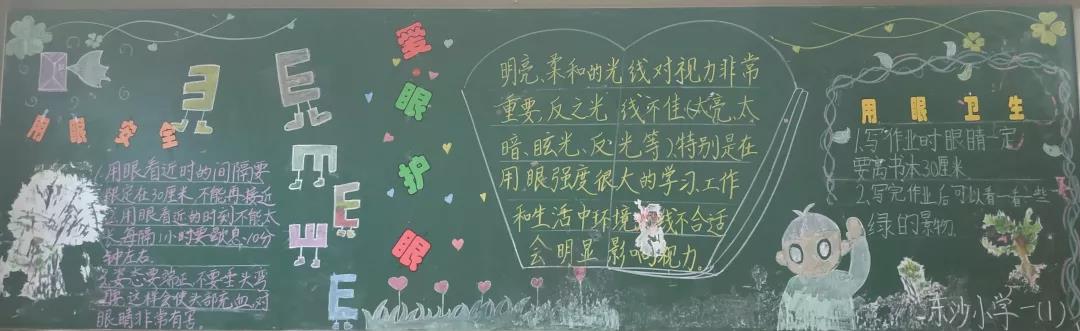 用眼安全
1.用眼看近时的间隔要
限定在30厘米,不能再接近
2.用眼看近的时刻不能太
长,每隔1小时要歇息10分
钟左右.
3.姿态要端正,不要垂头弯
腰,这样会使头部充血,对
眼睛非常有害.
E
E
E
E
E
E
爱·眼护眼
明亮、柔和的光线对视力非常
重要,反之光线不佳(太亮、太
暗、眩光、反光等)特别是在
用眼强度很大的学习、工作
和生活中环境光线不合适
会明显影响视力.
用眼卫生
1.写作业时眼睛一定
要离书本30厘米
2.写完作业后可以看一看一些
绿的景物.
东沙小学一(1)